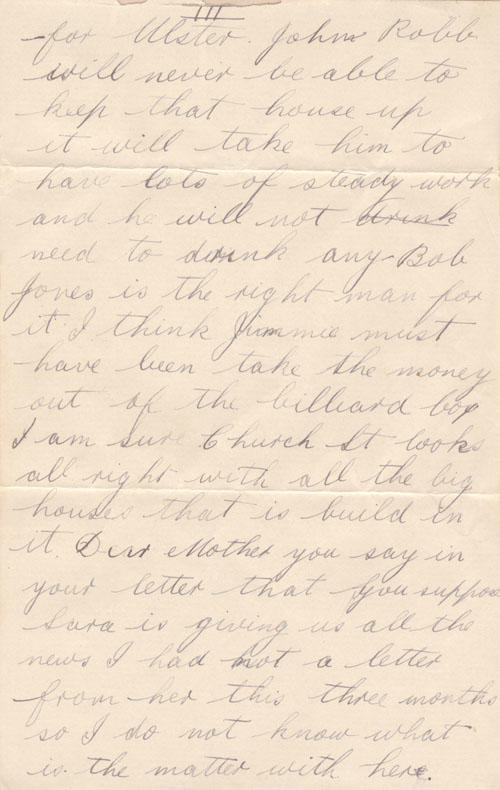 III
for Ulster. John Robb
will never be able to
keep that house up
it will take him to
have lots of steady work
and he will not drink
need to drink any Bob
Jones is the right man for
it I think Jimmie must
have been take the money
out of the billiard box
I am sure Church St looks
all right with all the big
houses that is build in
it. Dear Mother you say in
your letter that you suppose
Sara is giving us all the
news I had not a letter
from her this three months
so I do not know what
is the matter with her.